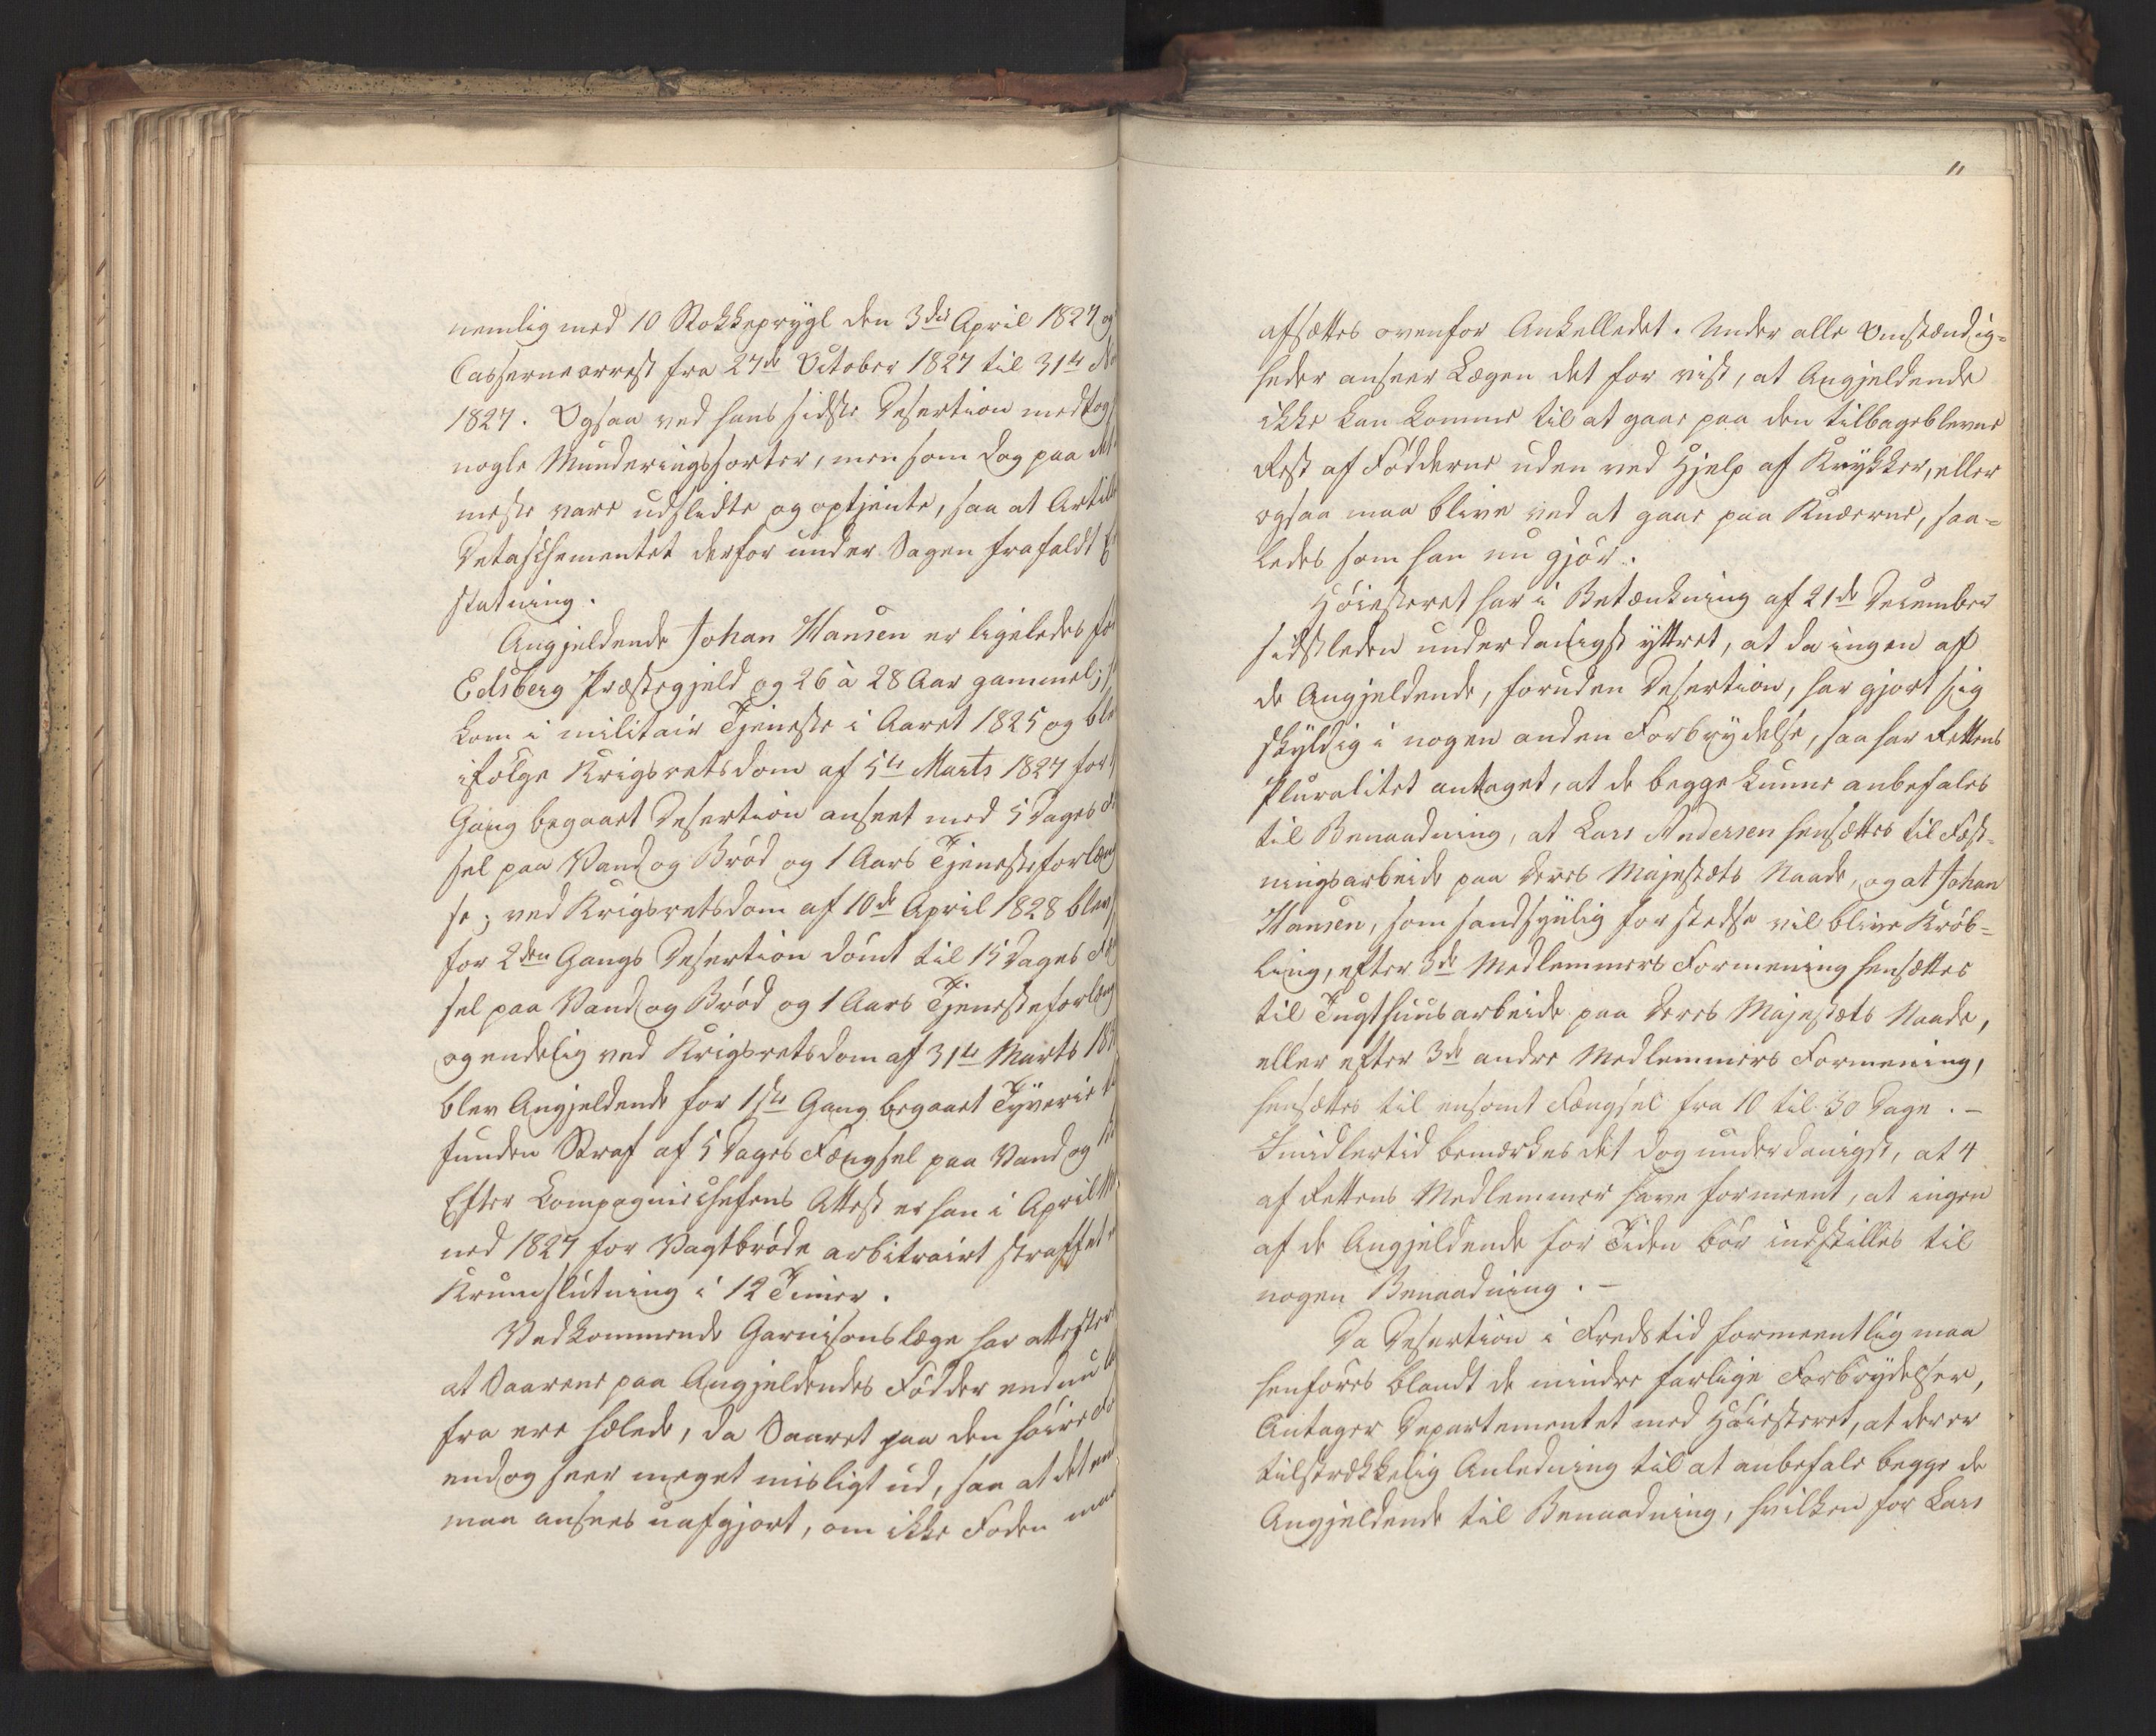 nemlig med 10 Stokkeprygl den 3die April 1827 og
Casernearrest fra 27de October 1827 til 31te
1827. Ogsaa ved hans sidste Desertion medtog
nogle Munderingssorter, men som dog paa det
meste vare udslidte og optjente, saa at Artil
Detaschementet derfor under Sagen frafaldt
statning.
Angjeldende Johan Hansen er ligeledes
Edsberg Præstegjeld og 26 à 28 Aar gammel;
kom i militair Tjeneste i Aaret 1825 og ble
ifölge Krigsretsdom af 5te Marts 1827 for
Gang begaaet Desertion anseet med 5 Dages
sel paa Vand og Bröd og 1 Aars Tjenesteforlæng
se; ved Krigsretsdom af 10de April 1828 blev
for 2den Gangs Desertion dömt til 15 Dages
sel paa Vand og Bröd og 1 Aars Tjenesteforlæng
og endelig ved Krigsretsdom af 31te Marts
blev Angjeldende for 1ste Gang begaaet Tyverie
funden Straf af 5 Dages Fængsel paa Vand og
Efter Compagniechefens Attest er han i April
ned 1827 for Vagtbröde arbitrairt straffet
Krumslutning i 12 Timer.
Vedkommende Garnisonslæge har attestert
at Saarene paa Angjeldendes Födder endnu
fra ere hælede, da Saaret paa den höire
endog seer meget misligt ud, saa at det
maa ansees uafgjort, om ikke Foden maa
11
afsættes ovenfor Ankelledet. Under alle Omstændig=
heder anseer Lægen det for vist, at Angjeldende
ikke kan komme til at gaae paa den tilbageblevne
Rest af Födderne uden ved Hjelp af Krykker, eller
ogsaa maa blive ved at gaae paa Knæerne, saa=
ledes som han nu gjör.
Höiesteret har i Betænkning af 21de December
sidstleden underdanigst yttret, at da ingen af
de Angjeldende, foruden Desertion, har gjort sig
skyldig i nogen anden Forbrydelse, saa har Rettens
Pluralitet antaget, at de begge kunne anbefales
til Benaadning, at Lars Andersen hensættes til Fæst=
ningsarbeide paa Deres Majestæts Naade, og at Johan
Hansen, som sandsynlig for stedse vil blive Kröb=
ling, efter 3de Medlemmers Formening hensættes
til Tugthuusarbeide paa Deres Majestæts Naade,
eller efter 3de andre Medlemmers Formening,
hensættes til ensomt Fængsel fra 10 til 30 Dage. –
Imidlertid bemærkes det dog underdanigst, at 4
af Rettens Medlemmer have formeent, at ingen
af de Angjeldende for Tiden bör indstilles til
nogen Benaadning. –
Da Desertion i Fredstid formeentlig maa
henföres blandt de mindre farlige Forbrydelser,
Antager Departementet med Höiesteret, at der er
tilstrækkelig Anledning til at anbefale begge de
Angjeldende til Benaadning, hvilken for Lars